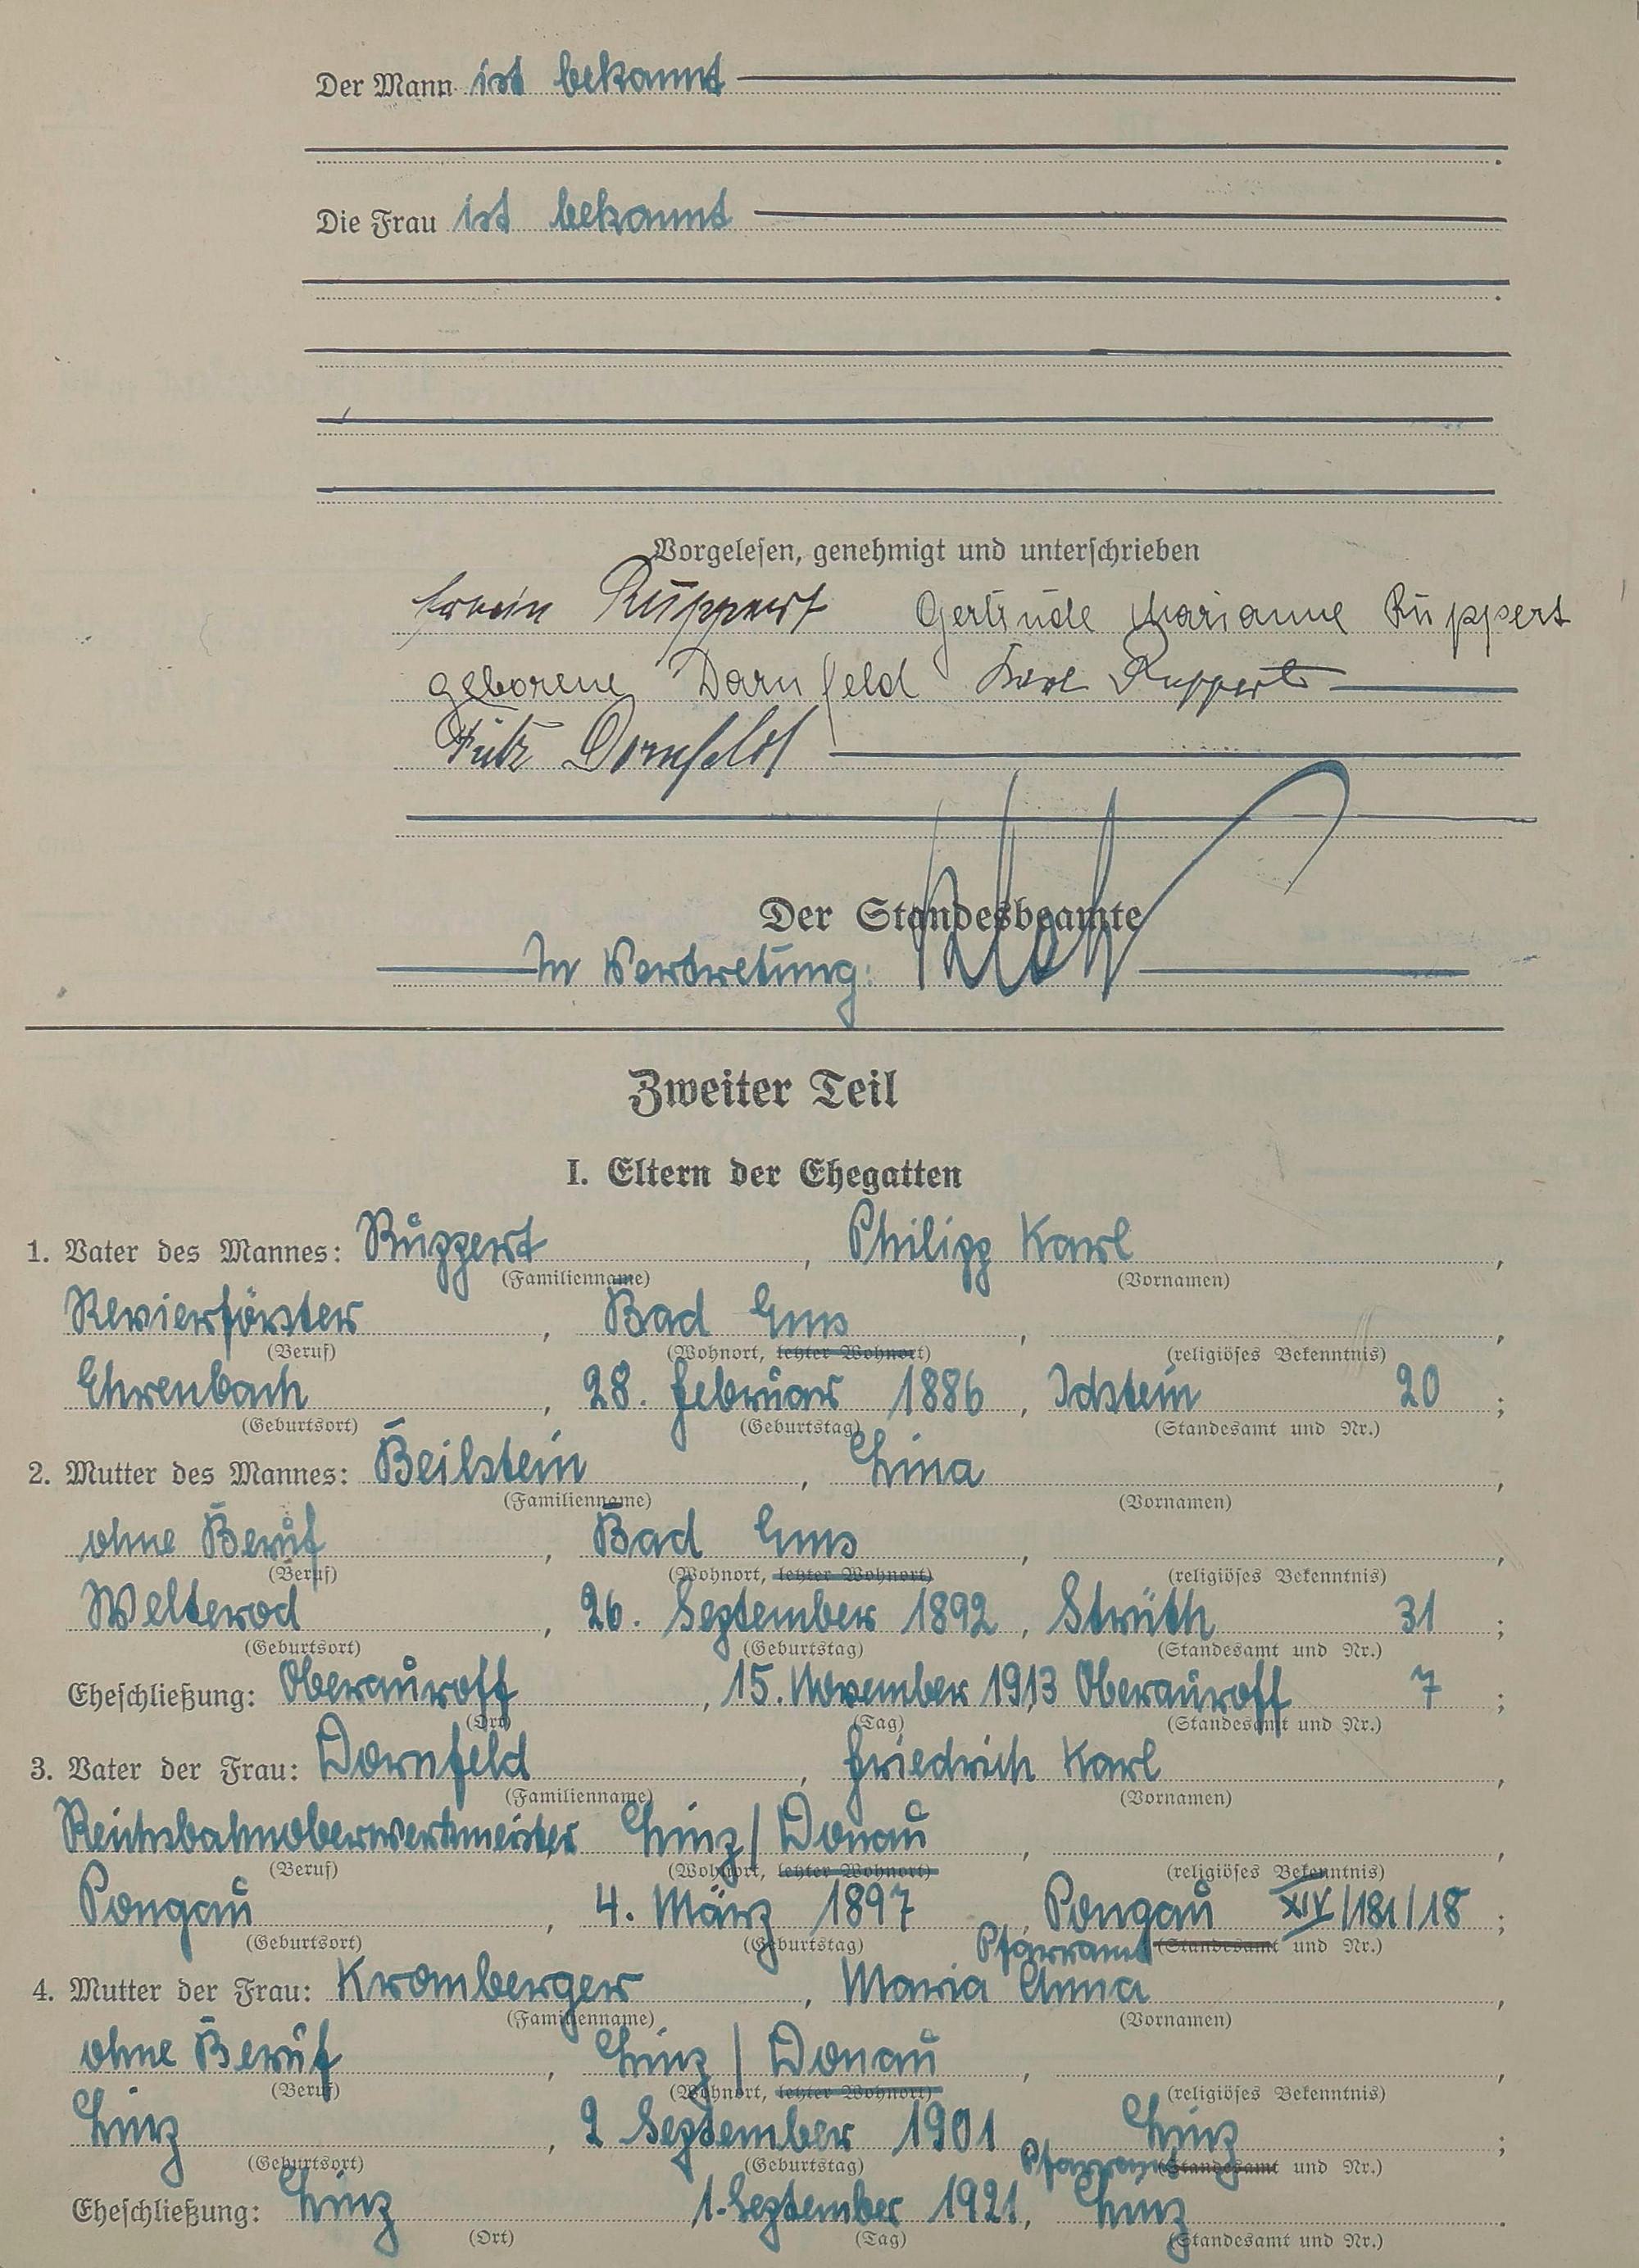 Der Mann ist bekannt
Die Frau ist bekannt
Vorgelesen, genehmigt und unterschrieben
Erwin Ruppert Gertrude Marianne Ruppert
geborene Dornfeld Karl Ruppert
Fritz Dornfeld
Der Standesbeamte
In Vertretung:
Zweiter Teil
I. Eltern der Ehegatten
1. Vater des Mannes: Ruppert, Philipp Karl,
(Familienname) (Vornamen)
Revierförster, Bad Ems,
(Beruf) (Wohnort, letzter Wohnort) (religiöses Bekenntnis)
Ehrenbach, 28. Februar 1886, Idstein 20;
(Geburtsort) (Geburtstag) (Standesamt und Nr.)
2. Mutter des Mannes: Beilstein, Lina,
(Familienname) (Vornamen)
ohne Beruf, Bad Ems,
(Beruf) (Wohnort, letzter Wohnort) (religiöses Bekenntnis)
Welterod, 26. September 1892, Strüth 31;
(Geburtsort) (Geburtstag) (Standesamt und Nr.)
Eheschließung: Oberauroff, 15. November 1913, Oberauroff 7;
(Ort) (Tag) (Standesamt und Nr.)
3. Vater der Frau: Dornfeld, Friedrich Karl,
(Familienname) (Vornamen)
Reichsbahnoberwerkmeister, Linz/Donau,
(Beruf) (Wohnort, letzter Wohnort) (religiöses Bekenntnis)
Pongau, 4. März 1897, Pongau XIV/181/18;
(Geburtsort) (Geburtstag) Pfarramt (Standesamt und Nr.)
4. Mutter der Frau: Kromberger, Maria Anna,
(Familienname) (Vornamen)
ohne Beruf, Linz/Donau,
(Beruf) (Wohnort, letzter Wohnort) (religiöses Bekenntnis)
Linz, 2 September 1901 Linz;
(Geburtsort) (Geburtstag) Pfarramt (Standesamt und Nr.)
Eheschließung: Linz, 1. September 1921, Linz.
(Ort) (Tag) (Standesamt und Nr.)